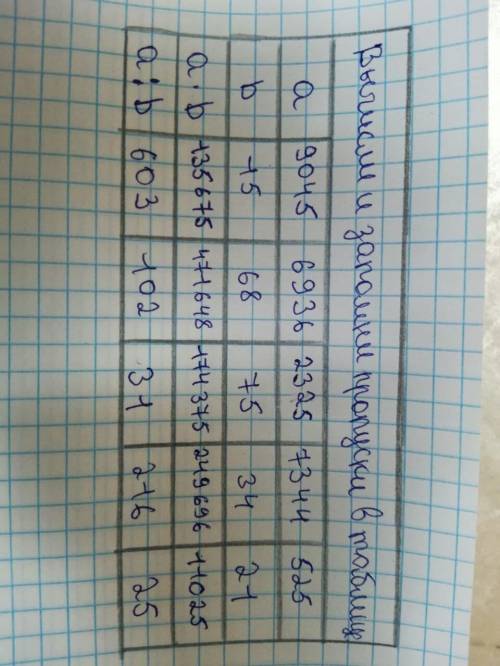 Вычисли и заполни пропуски в таблице
a 9045 6936 2325 7344 525
b 15 68 75 34 21
a · b 135675 471648 174375 249696 11025
a : b 603 102 31 216 25